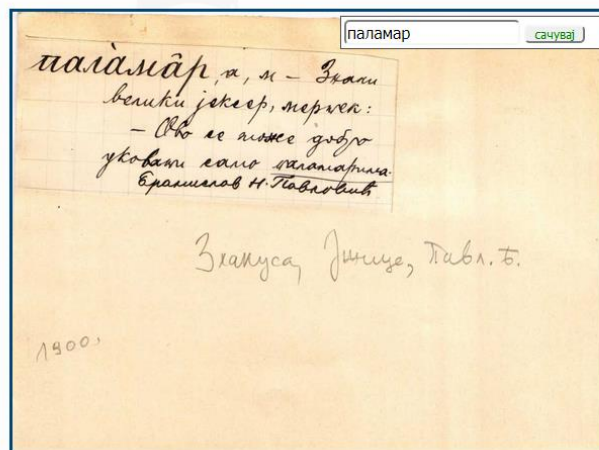 паламар
сачувај
пала̀ма̑р, а, м – Значи
велики јексер, мертек:
– Ово се може добро
уковати само паламарима.
Бранислав Н. Павловић
Злакуса, Павл. Б.
1900.